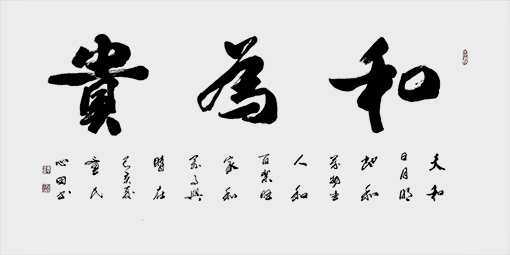 和為貴
天和
日月明
地和
萬物生
人和
百業旺
家和
萬事興
時在
己亥夏
民
心田書